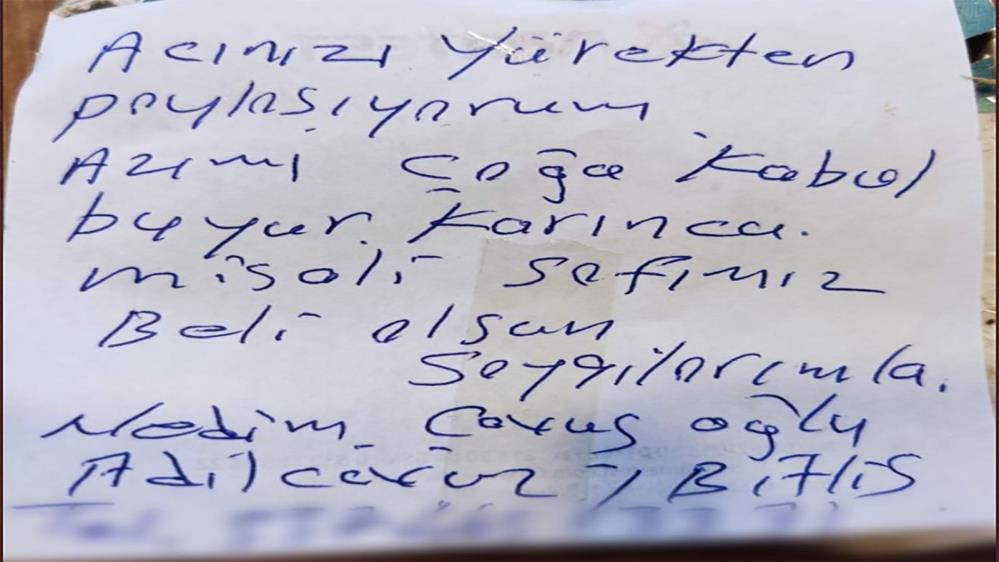 Acınızı Yürekten
paylasıyorum
Azımı Çoğa Kabul
buyur. Karınca.
misali sefımız
Beli olsun
Seygilarımla.
Nedim Çavuş oğlu
Adilcevaz, BiTlis